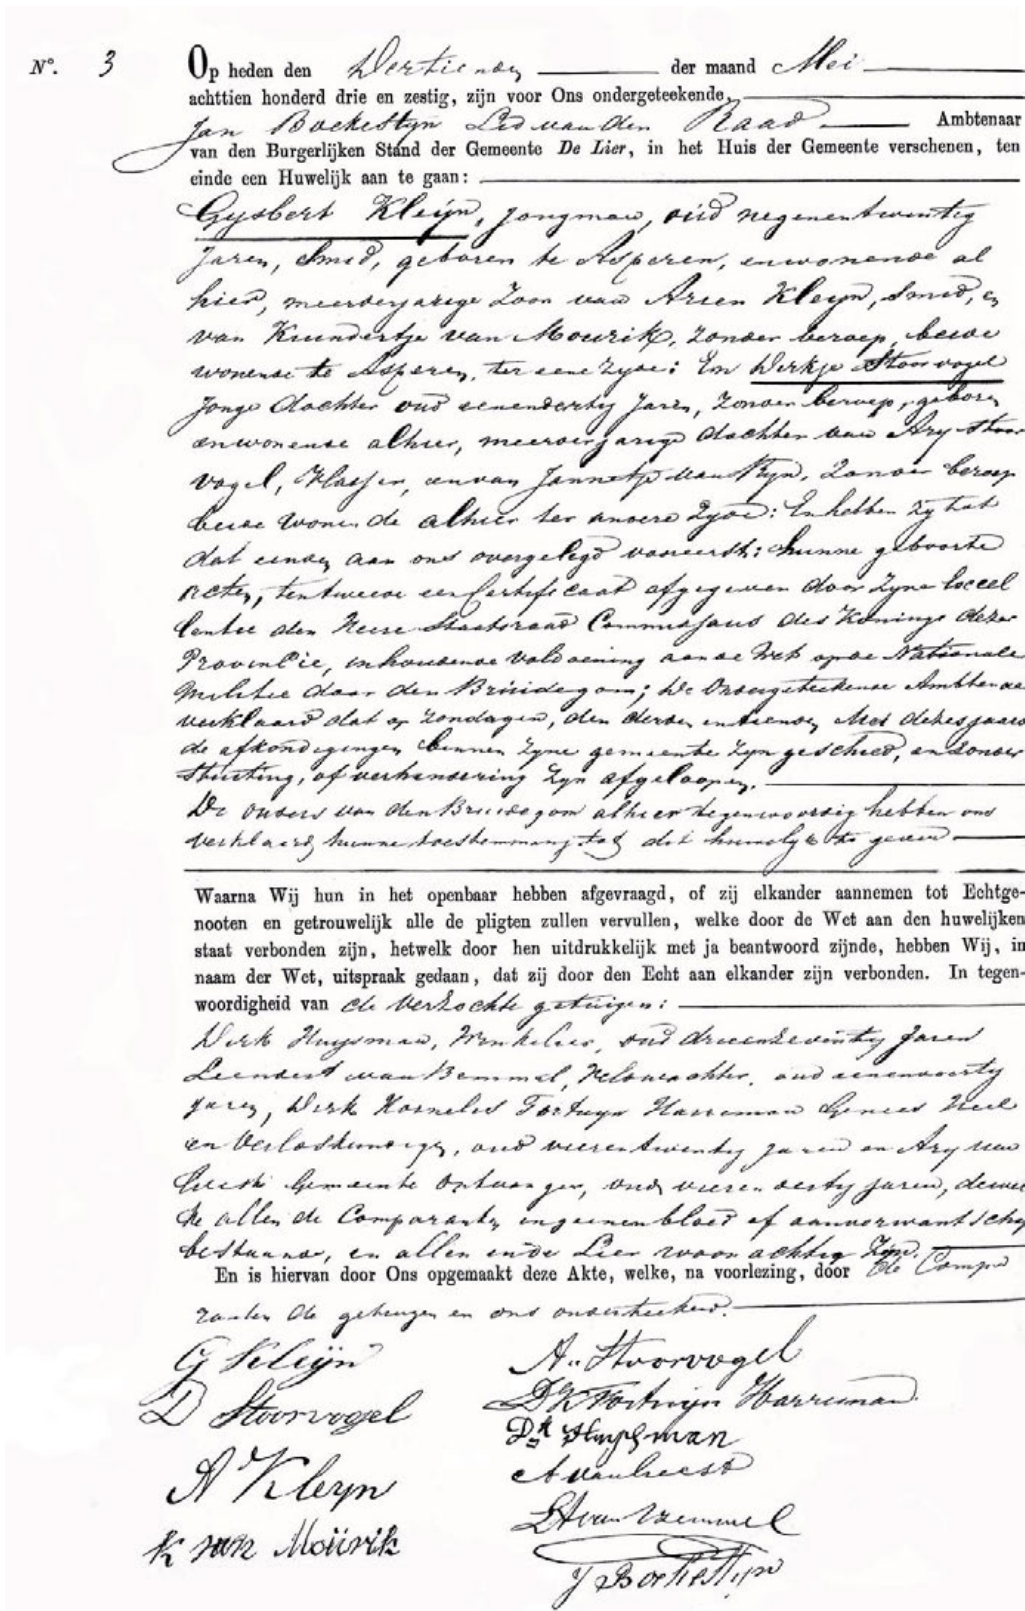 N°. 3 Op heden den Dertienden der maand Mei
achttien honderd drie en zestig, zijn voor Ons ondergeteekende,
Jan Boekestijn Lid van den Raad Ambtenaar
van den Burgerlijken Stand der Gemeente De Lier, in het Huis der Gemeente verschenen, ten
einde een Huwelijk aan te gaan:
Gysbert Kleijn, jongman, oud negenentwintig
Jaren, Smid, geboren te Asperen, en wonende al
hier, meerderjarige Zoon van Arien Kleijn, Smid, en
van Kundertje van Mourik, zonder beroep, beide
wonende te Asperen, ter eene Zyde: En Derkje Stoorvogel
Jonge dochter oud eenendertig Jaren, Zonder beroep, geboren
en wonende alhier, meerderjarige dochter van Ary Stoor
vogel, en van Jannetje van Ryn, Zonder beroep
beide wonende alhier ter andere Zyde: En hebben zy tot
dat einde, aan ons overgelegd vooreerst: hunne geboorte
acten, ten tweede een Certificaat afgegeven door Zyne Excel
lentie den Heere Staatsraad Commissaris des Konings dezer
Provincie, inhoudende voldoening aan de Wet op de Nationale
Militie door den Bruidegom; De Ondergeteekende Ambtenaar
verklaard dat op Zondagen, den derden en tienden Mei dezes jaars
de afkondigingen binnen Zyne gemeente Zyn geschied, en Zonder
Stuiting, of verhindering Zyn afgeloopen.
De ouders van den Bruidegom alhier tegenwoordig hebben ons
verklaard hunne toestemming tot dit huwelyk te geven
Waarna Wij hun in het openbaar hebben afgevraagd, of zij elkander aannemen tot Echtge-
nooten en getrouwelijk alle de pligten zullen vervullen, welke door de Wet aan den huwelijken
staat verbonden zijn, hetwelk door hen uitdrukkelijk met ja beantwoord zijnde, hebben Wij, in
naam der Wet, uitspraak gedaan, dat zij door den Echt aan elkander zijn verbonden. In tegen-
woordigheid van de verzochte getuigen:
Dirk Huysman, Winkelier, oud drieenzeventig Jaren
Leendert van Bemmel, Veldwachter, oud eenenveertig
jaren, Dirk Kornelis Fortuyn Harreman Genees Heel
en Verloskundige, oud vierentwintig jaren en Ary van
Geest Gemeente Ontvanger, oud vierendertig jaren, dewel
ke allen de Comparanten in geenen bloed of aanverwantschap
bestaande, en allen in de Lier woonachtig Zyn.
En is hiervan door Ons opgemaakt deze Akte, welke, na voorlezing, door de Compa
ranten de getuigen en ons onderteekend.
G Kleijn
D Stoorvogel
A Kleyn
K van Moürik
A. Stoorvogel
DK Fortuijn Harreman
Dk Huysman
A van Geest
L van Bemmel
J Boekestijn